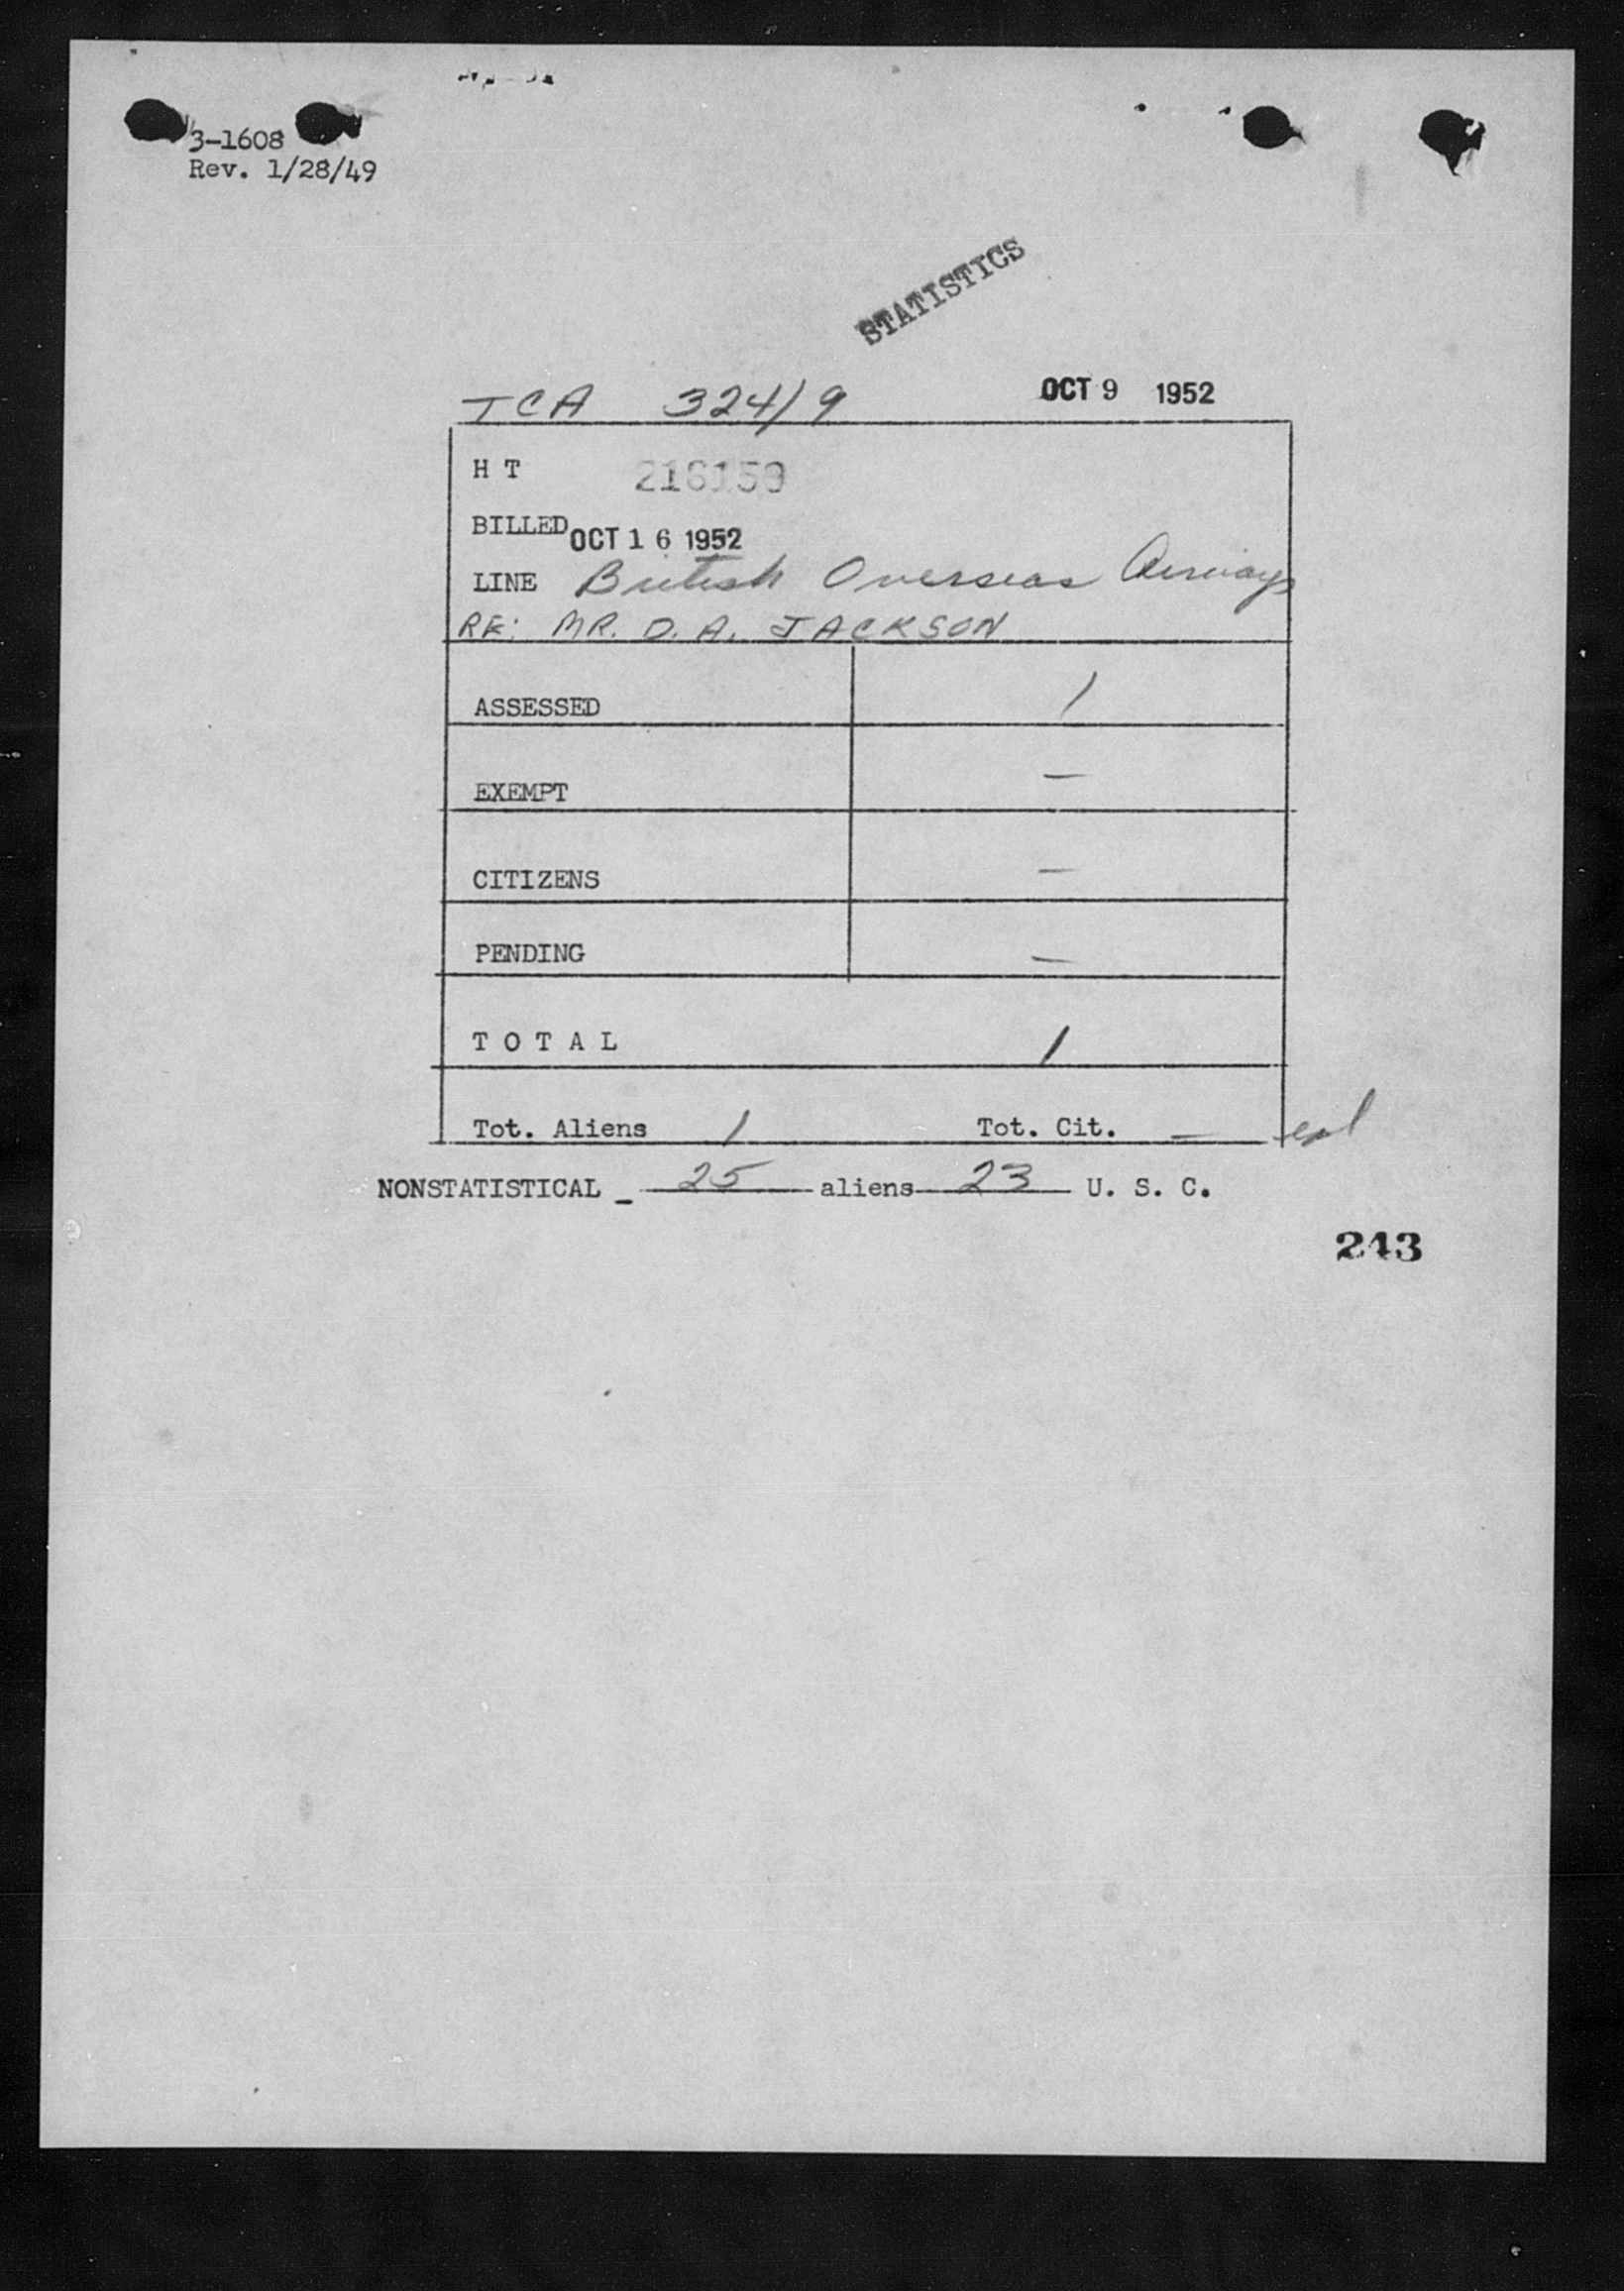 3-1608
Rev. 1/28/49
STATISTICS
TCA 324/9 OCT 9 1952
H T 216159
BILLED OCT 16 1952
LINE British Overseas Airways
RE: MR. D. A. JACKSON
ASSESSED 1
EXEMPT —
CITIZENS —
PENDING —
T O T A L 1
Tot. Aliens 1 Tot. Cit. —
NONSTATISTICAL - 25 aliens 23 U. S. C.
243